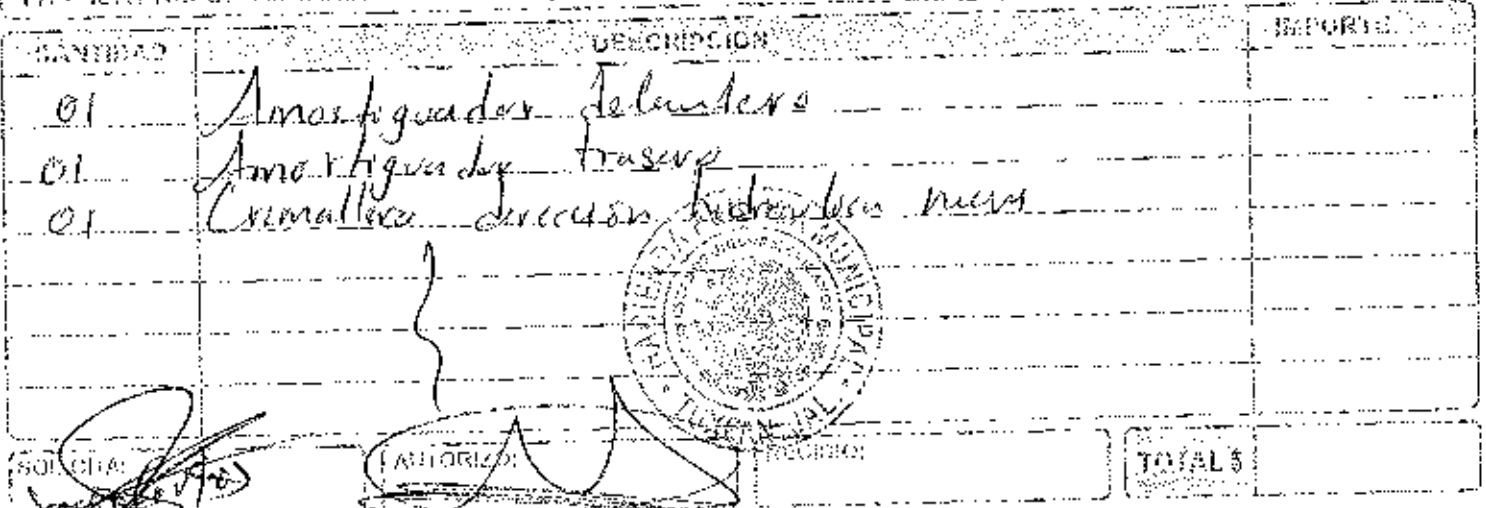 CANTIDAD DESCRIPCION IMPORTE
01 Amortiguador delantero
01 Amortiguador trasero
01 Cremallera dirección hidraulica nueva
HACIENDA MUNICIPAL
SOLICITA: AUTORIZO: RECIBIO: TOTAL $